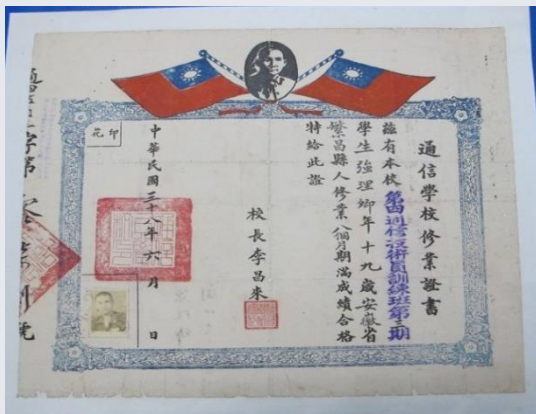 通信學校修業證書
茲有本校第四通信技術員訓練班第二期
學生強理鄉年十九歲安徽省
繁昌縣人修業八個月期滿成績合格
特給此證
校長李昌來
中華民國三十八年六月　日
印花